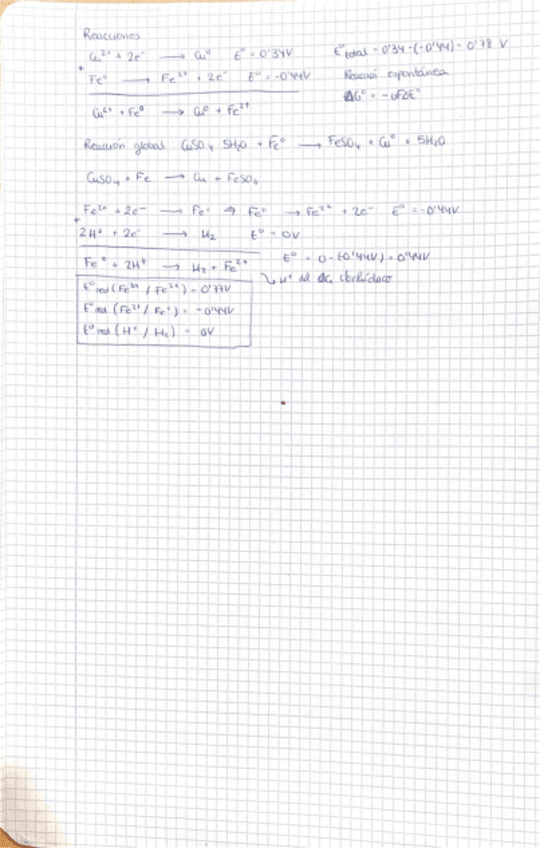 Reacciones
Cu²⁺ + 2e⁻ → Cu⁰ E° = 0'34V
E°total = 0'34 - (-0'44) = 0'78 V
+ Fe⁰ → Fe²⁺ + 2e⁻ E° = -0'44V
Reacción espontánea
ΔG° = -nFΔE°
Cu²⁺ + Fe⁰ → Cu⁰ + Fe²⁺
Reacción global CuSO₄ 5H₂O + Fe⁰ → FeSO₄ + Cu⁰ + 5H₂O
CuSO₄ + Fe → Cu + FeSO₄
Fe²⁺ + 2e⁻ → Fe⁰ ⇒ Fe⁰ → Fe²⁺ + 2e⁻ E° = -0'44V
+ 2H⁺ + 2e⁻ → H₂ E° = 0V
Fe⁰ + 2H⁺ → H₂ + Fe²⁺ E° = 0 - (-0'44V) = 0'44V
↳ H⁺ del ác. clorhídrico
E° red (Fe³⁺ / Fe²⁺) = 0'77V
E° red (Fe²⁺ / Fe⁰) = -0'44V
E° red (H⁺ / H₂) = 0V